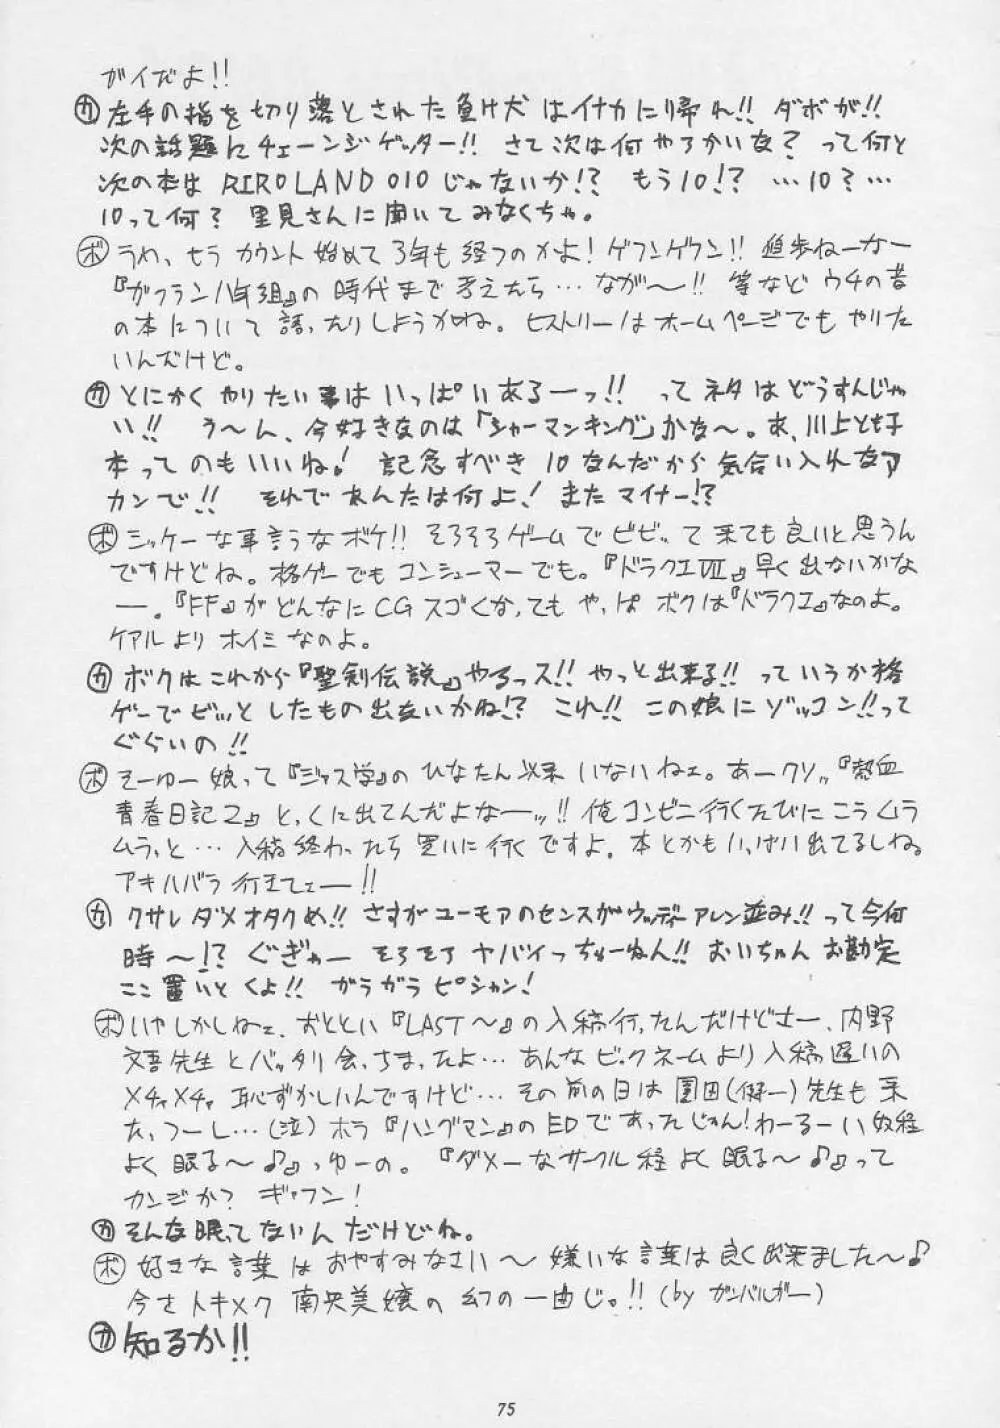 ガイだよ!!
カ 左手の指を切り落とされた負け犬はイナカに帰れ!! ダボが!!
次の話題にチェーンジゲッター!! さて次は何やろかいな? って何と
次の本は RIROLAND 010 じゃないか!? もう10!? …10?…
10って何? 里見さんに聞いてみなくちゃ。
ボ うわ、もうカウント始めて3年も経つのかよ! ゲフンゲフン!! 進歩ねーなー
『ガフラン八年組』の時代まで考えたら…なが〜!! 等などウチの昔
の本について語ったりしようかね。ヒストリーはホームページでもやりた
いんだけど。
カ とにかくやりたい事はいっぱいあるーっ!! ってネタはどうすんじゃ
い!! う〜ん、今好きなのは「シャーマンキング」かな〜。あ、川上とも子
本ってのもいいね! 記念すべき10なんだから気合い入れなア
カンで!! それであんたは何よ! またマイナー!?
ボ シッケーな事言うなボケ!! そろそろゲームでビビッて来ても良いと思うん
ですけどね。格ゲーでもコンシューマーでも。『ドラクエVII』早く出ないかな
ー。『FF』がどんなにCGスゴくなってもやっぱボクは『ドラクエ』なのよ。
ケアルよりホイミなのよ。
カ ボクはこれから『聖剣伝説』やるっス!! やっと出来る!! っていうか格
ゲーでビッとしたもの出ないかね!? これ!! この娘にゾッコン!!って
ぐらいの!!
ボ そーゆー娘って『ジャス学』のひなたん以来いないねェ。あークソッ『熱血
青春日記2』とっくに出てんだよなーッ!! 俺コンビニ行くたびにこうムラ
ムラっと…入稿終わったら買いに行くですよ。本とかもいっぱい出てるしね。
アキハバラ行きてェー!!
カ クサレダメオタクめ!! さすがユーモアのセンスがウッディ・アレン並み!!って今何
時〜!? ぐぎゃー そろそろヤバイっちゅーねん!! おいちゃんお勘定
ここ置いとくよ!! ガラガラピシャン!
ボ いやしかしねェ、おととい『LAST〜』の入稿行ったんだけどさー、内野
文吾先生とバッタリ会っちまったよ…あんなビックネームより入稿遅いの
メチャメチャ恥ずかしいんですけど…その前の日は園田(健一)先生も来
たっつーし…(泣) ホラ『ハングマン』のEDであったじゃん!わーるーい奴程
よく眠る〜♪』っゆーの。『ダメーなサークル程よく眠る〜♪』って
カンジか? ギャフン!
カ そんな眠ってないんだけどね。
ボ 好きな言葉はおやすみなさい〜 嫌いな言葉は良く出来ました〜♪
今さトキメク 南央美嬢の幻の一曲じゃ!! (by ガンバルガー)
カ 知るか!!
75